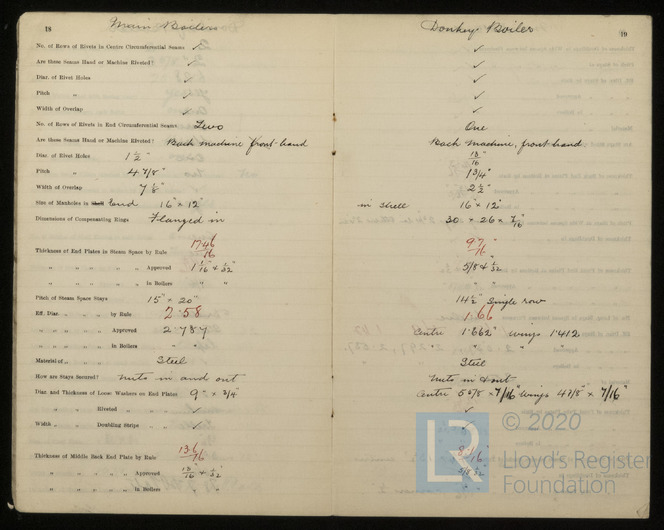 18
Main Boilers
No. of Rows of Rivets in Centre Circumferential Seams ✓
Are these Seams Hand or Machine Riveted? ✓
Diar. of Rivet Holes ✓
Pitch „ ✓
Width of Overlap ✓
No. of Rows of Rivets in End Circumferential Seams Two
Are these Seams Hand or Machine Riveted? Back machine front hand
Diar. of Rivet Holes 1 1/2"
Pitch „ 4 7/8"
Width of Overlap 7 1/8"
Size of Manholes in Shell End 16" × 12"
Dimensions of Compensating Rings Flanged in
Thickness of End Plates in Steam Space by Rule 17.46/16
„ „ „ „ „ Approved 1 1/16 + 1/32"
„ „ „ „ „ in Boilers " "
Pitch of Steam Space Stays 15" × 20"
Eff. Diar. „ „ „ by Rule 2.58
„ „ „ „ „ Approved 2.787
„ „ „ „ „ in Boilers " "
Material of „ „ „ Steel
How are Stays Secured? Nuts in and out
Diar. and Thickness of Loose Washers on End Plates 9" × 3/4"
„ „ Riveted „ „ „ ✓
Width „ Doubling Strips „ „ ✓
Thickness of Middle Back End Plate by Rule 13.6/16
„ „ „ „ „ Approved 13/16 + 1/32
„ „ „ „ „ in Boilers " "
19
Donkey Boiler
✓
✓
✓
✓
✓
One
Back machine, front hand
13/16
1 3/4"
2 1/2"
in shell 16" × 12"
30 × 26 × 7/16"
9.7/16
5/8 + 1/32
" "
14 1/2" Single row
1.66
Centre 1.662" Wings 1.412
" " " "
Steel
Nuts in & out
Centre 5 5/8 × 7/16" Wings 4 7/8" × 7/16"
✓
✓
5/8 1/32
LR
© 2020
Lloyd's Register
Foundation